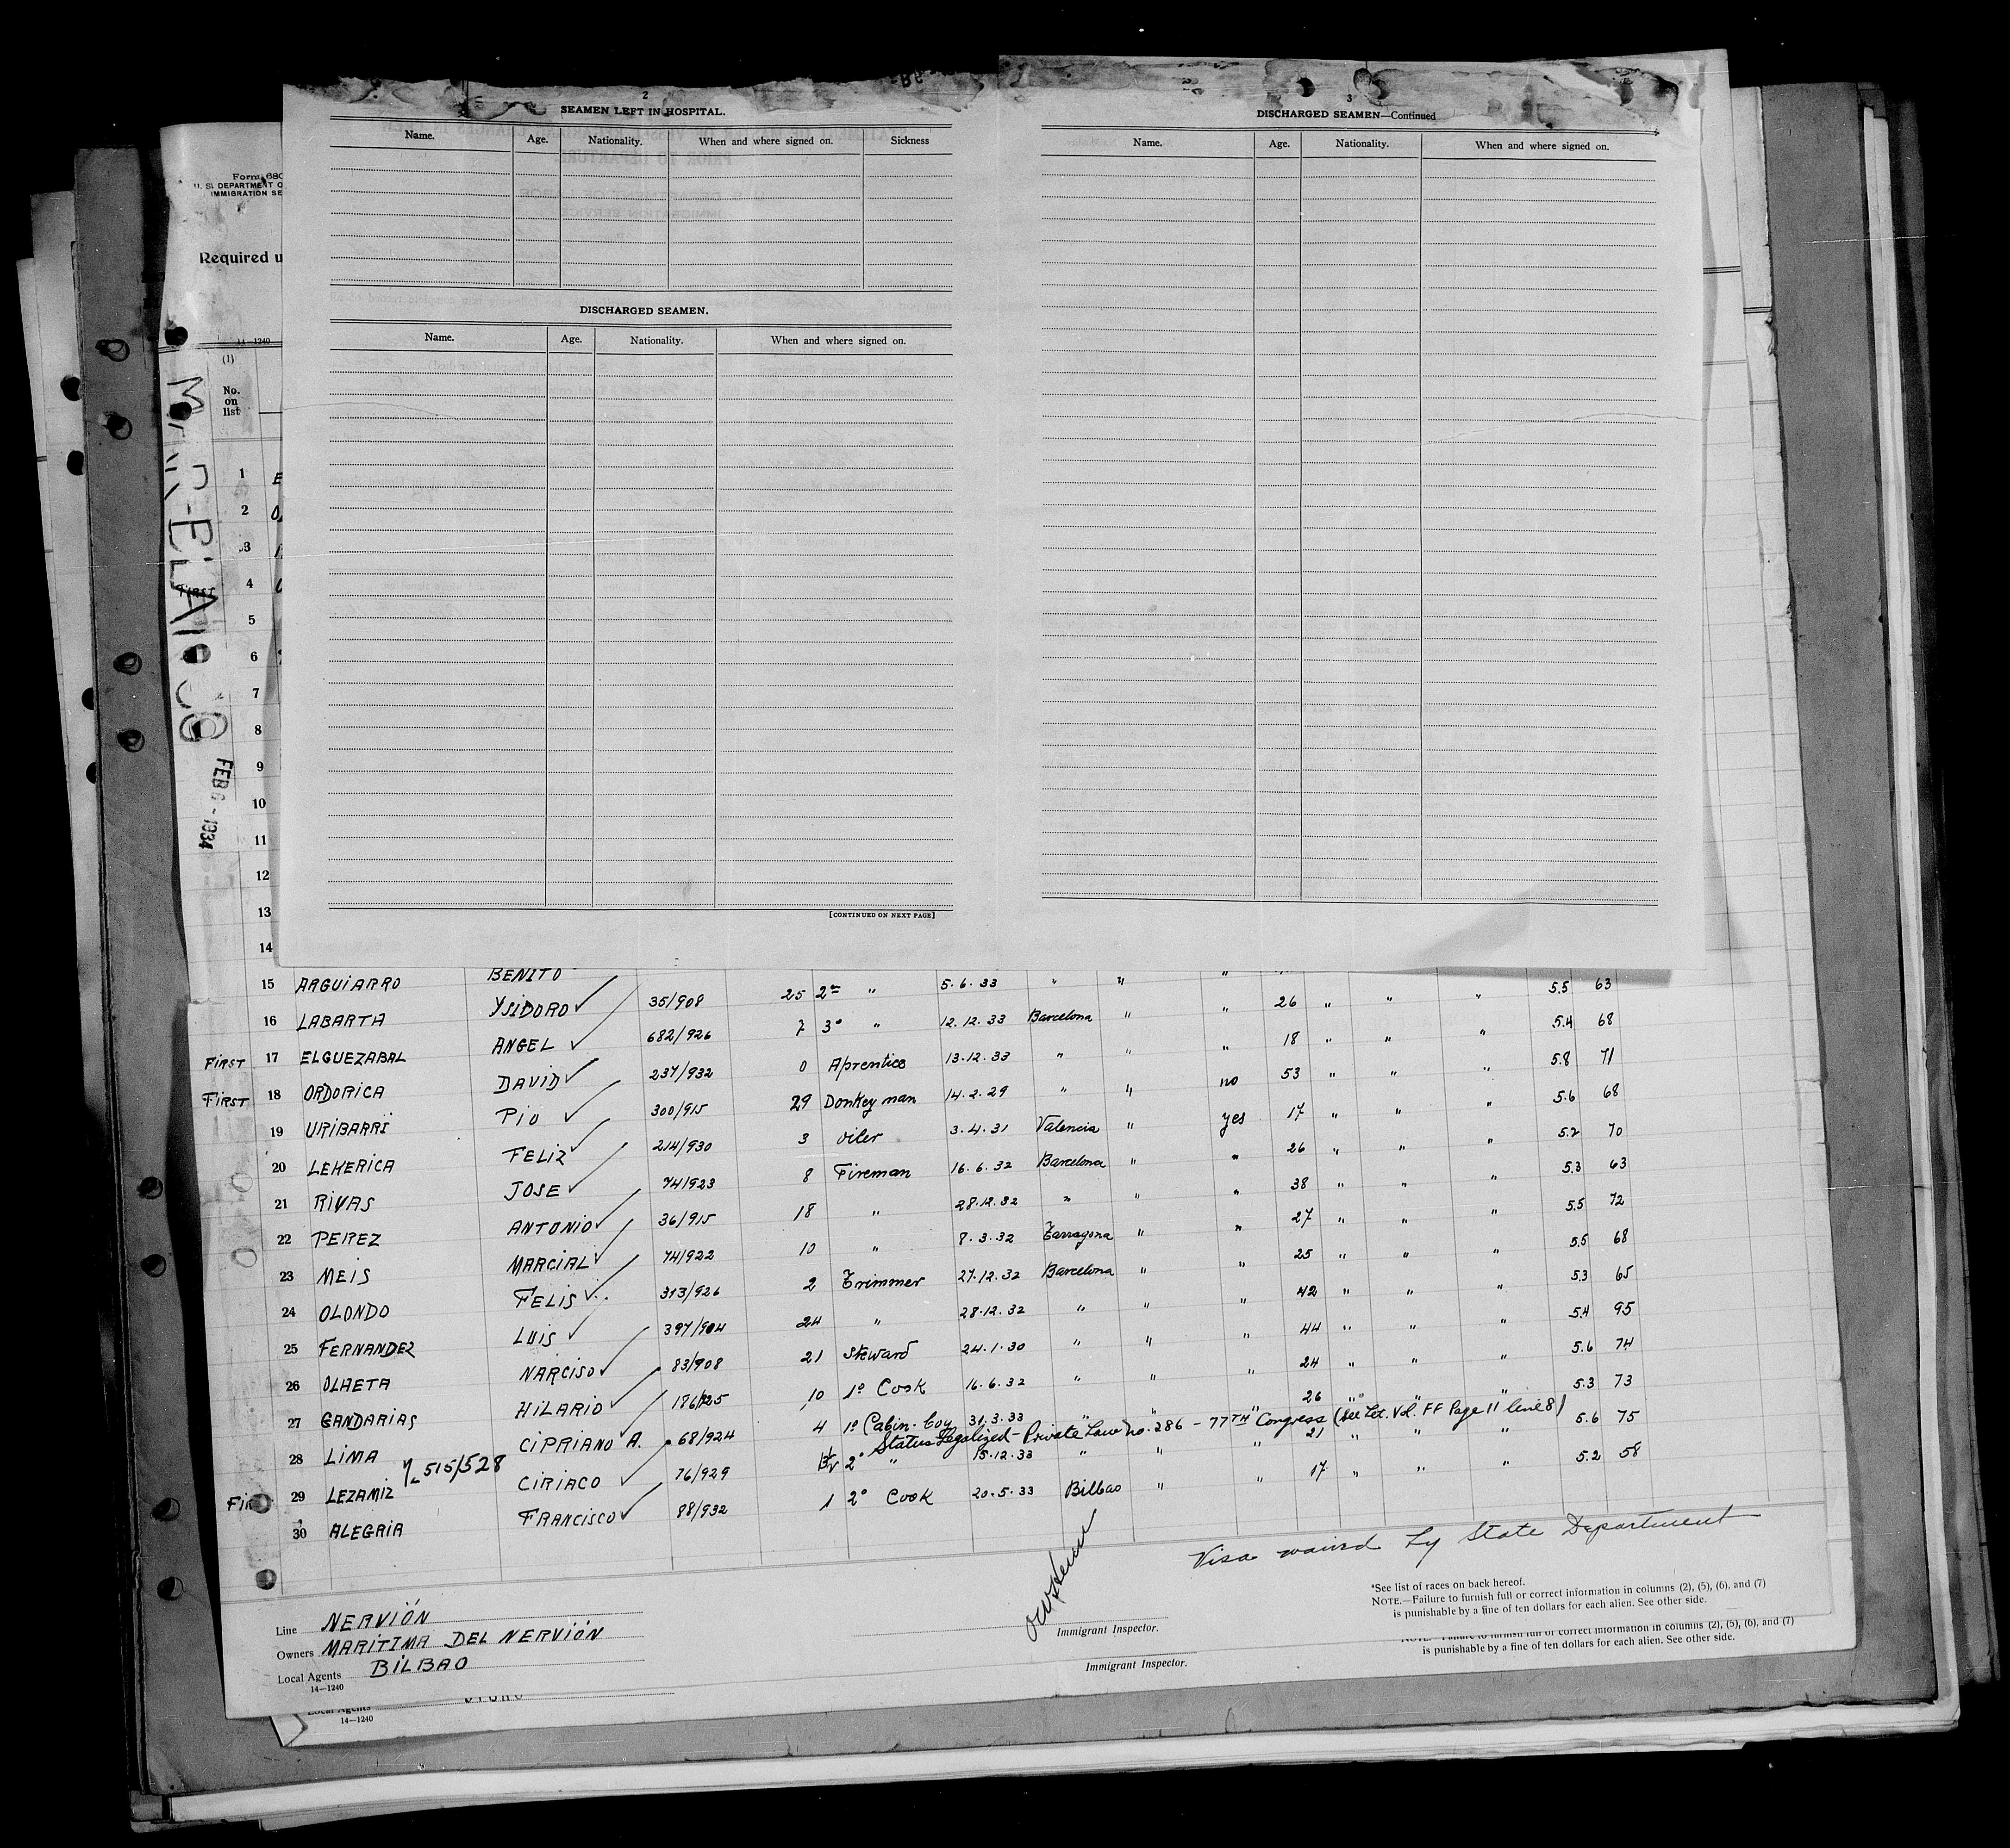 2
SEAMEN LEFT IN HOSPITAL.
Name. Age. Nationality. When and where signed on. Sickness
DISCHARGED SEAMEN.
Name. Age. Nationality. When and where signed on.
[CONTINUED ON NEXT PAGE]
3
DISCHARGED SEAMEN—Continued
Name. Age. Nationality. When and where signed on.
Form 680
U. S. DEPARTMENT O
IMMIGRATION SE
Required u
14—1240
(1)
No.
on
list
FEB 6 - 1934
1 E
2
3
4
5
6
7
8
9
10
11
12
13
14
15 ARGUIARRO BENITO
16 LABARTA YSIDORO 35/908 25 2º " 5.6.33 " " " 26 " " " 5.5 63
FIRST 17 ELGUEZABAL ANGEL 682/926 7 3º " 12.12.33 Barcelona " " 18 " " " 5.4 68
FIRST 18 ORDORICA DAVID 237/932 0 Aprentice 13.12.33 " " " 53 " " " 5.8 71
19 URIBARRI PIO 300/915 29 Donkey man 14.2.29 " " no 17 " " " 5.6 68
20 LEKERICA FELIZ 214/930 3 oiler 3.4.31 Valencia " yes 26 " " " 5.2 70
21 RIVAS JOSE 74/923 8 Fireman 16.6.32 Barcelona " " 38 " " " 5.3 63
22 PEREZ ANTONIO 36/915 18 " 28.12.32 " " " 27 " " " 5.5 72
23 MEIS MARCIAL 74/922 10 " 8.3.32 Tarragona " " 25 " " " 5.5 68
24 OLONDO FELIS 313/926 2 Trimmer 27.12.32 Barcelona " " 42 " " " 5.3 65
25 FERNANDEZ LUIS 397/904 24 " 28.12.32 " " " 44 " " " 5.4 95
26 OLAETA NARCISO 83/908 21 Steward 24.1.30 " " " 24 " " " 5.6 74
27 GANDARIAS HILARIO 186/925 10 1º Cook 16.6.32 " " " 26 " " " 5.3 73
28 LIMA CIPRIANO A. 68/924 4 1º Cabin-boy 31.3.33 " " " 21 " " " 5.6 75
Status Legalized - Private Law no. 286 - 77TH Congress (See Let. Vol. FF Page 11 line 8)
515/528
29 LEZAMIZ CIRIACO 76/929 2º " 15.12.33 " " " 17 " " " 5.2 58
30 ALEGRIA FRANCISCO 88/932 1 2º Cook 20.5.33 Bilbao "
Visa waived by State Department
Line NERVIÓN
Owners MARITIMA DEL NERVIÓN
Local Agents BILBAO
14—1240
Immigrant Inspector.
*See list of races on back hereof.
NOTE.—Failure to furnish full or correct information in columns (2), (5), (6), and (7)
is punishable by a fine of ten dollars for each alien. See other side.
Immigrant Inspector.
NOTE.—Failure to furnish full or correct information in columns (2), (5), (6), and (7)
is punishable by a fine of ten dollars for each alien. See other side.
Local Agents
14—1240